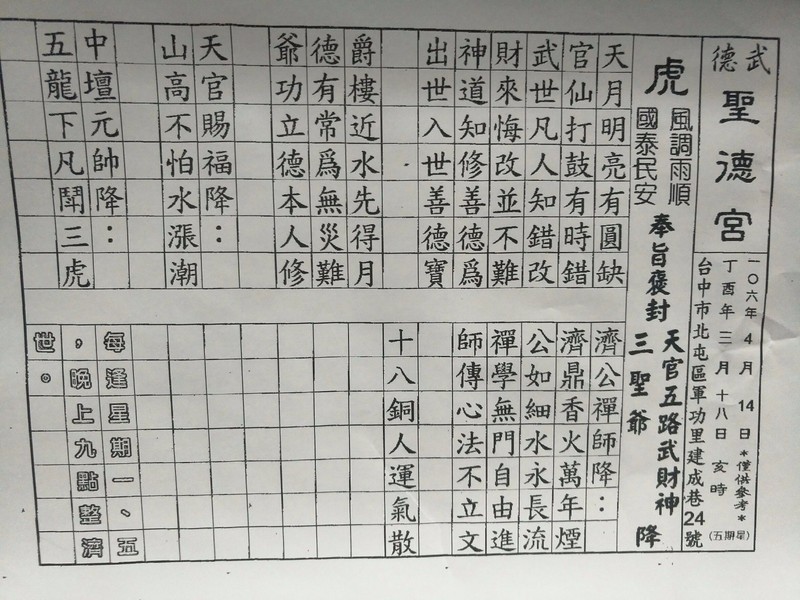 武德聖德宮
一〇六年4月14日*僅供參考*
丁酉年三月十八日亥時(星期五)
台中市北屯區軍功里建成巷24號
虎
風調雨順
國泰民安
奉旨褒封
天官五路武財神
三聖爺
降
天月明亮有圓缺
官仙打鼓有時錯
武世凡人知錯改
財來悔改並不難
神道知修善德爲
出世入世善德寶
爵樓近水先得月
德有常爲無災難
爺功立德本人修
天官賜福降：
山高不怕水漲潮
中壇元帥降：
五龍下凡鬧三虎
濟公禪師降：
濟鼎香火萬年煙
公如細水永長流
禪學無門自由進
師傳心法不立文
十八銅人運氣散
每逢星期一、五
，晚上九點整濟
世。